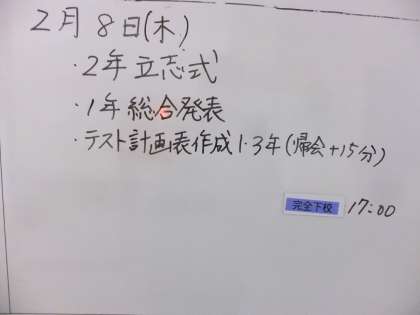 2月8日(木)
・2年立志式
・1年総合発表
・テスト計画表作成1・3年(帰会+15分)
完全下校 17:00